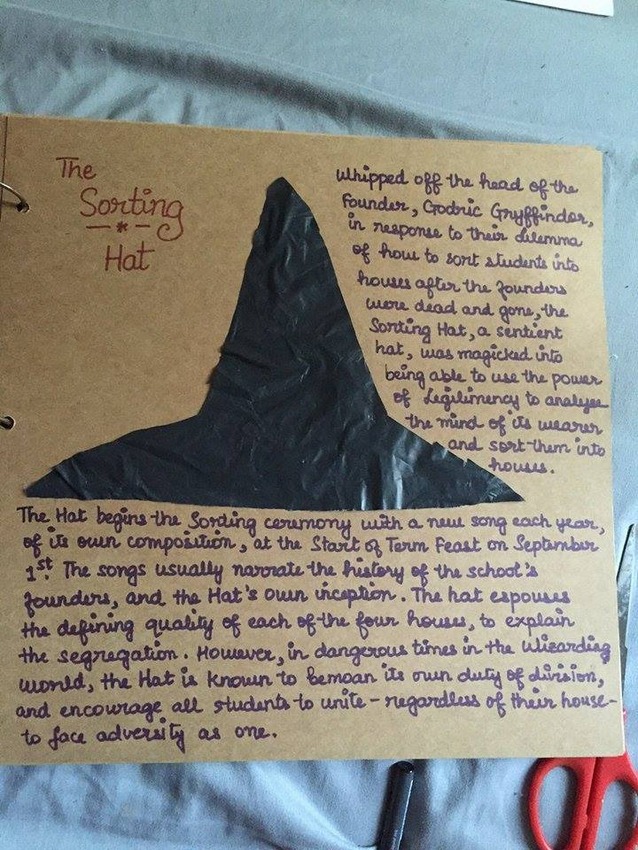 The
Sorting
- * -
Hat
Whipped off the head of the
Founder, Godric Gryffindor,
in response to their dilemma
of how to sort students into
houses after the founders
were dead and gone, the
Sorting Hat, a sentient
hat, was magicked into
being able to use the power
of Legilimency to analyse
the mind of its wearer
and sort them into
houses.
The Hat begins the Sorting ceremony with a new song each year,
of its own composition, at the Start of Term Feast on September
1st. The songs usually narrate the history of the school's
founders, and the Hat's own inception. The hat espouses
the defining quality of each of the four houses, to explain
the segregation. However, in dangerous times in the Wizarding
world, the Hat is known to bemoan its own duty of division,
and encourage all students to unite - regardless of their house -
to face adversity as one.